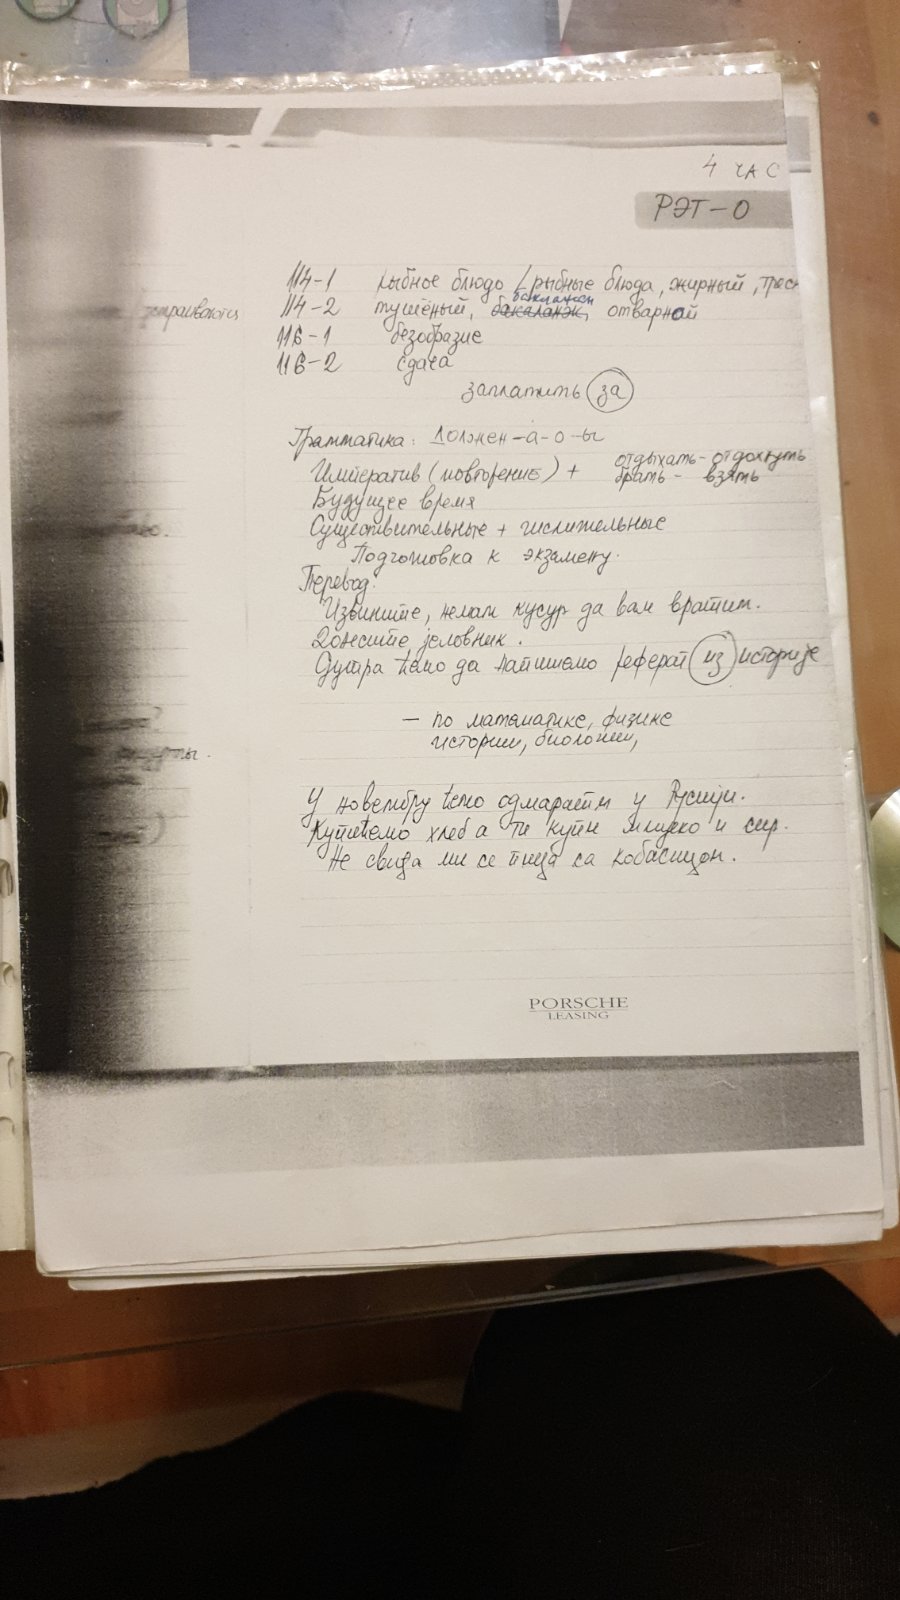 4 ЧАС
РЭТ-О
114-1 рыбное блюдо / рыбные блюда, жирный, треск
114-2 тушёный, баклажан отварной
116-1 безобразие
116-2 сдача
заплатить за
Грамматика: Должен-а-о-ы
отдыхать-отдохнуть
Императив (повторение) + брать - взять
Будущее время
Существительные + числительные
Подготовка к экзамену.
Перевод:
Извините, немам кусур да вам вратим.
Донесите јеловник.
Сутра ћемо да напишемо реферат из историје
- по математике, физике
истории, биологии,
У новембру ћемо одмарати у Русији.
Купићемо хлеб а ти купи млијеко и сир.
Не свиђа ми се пица са кобасицом.
PORSCHE
LEASING